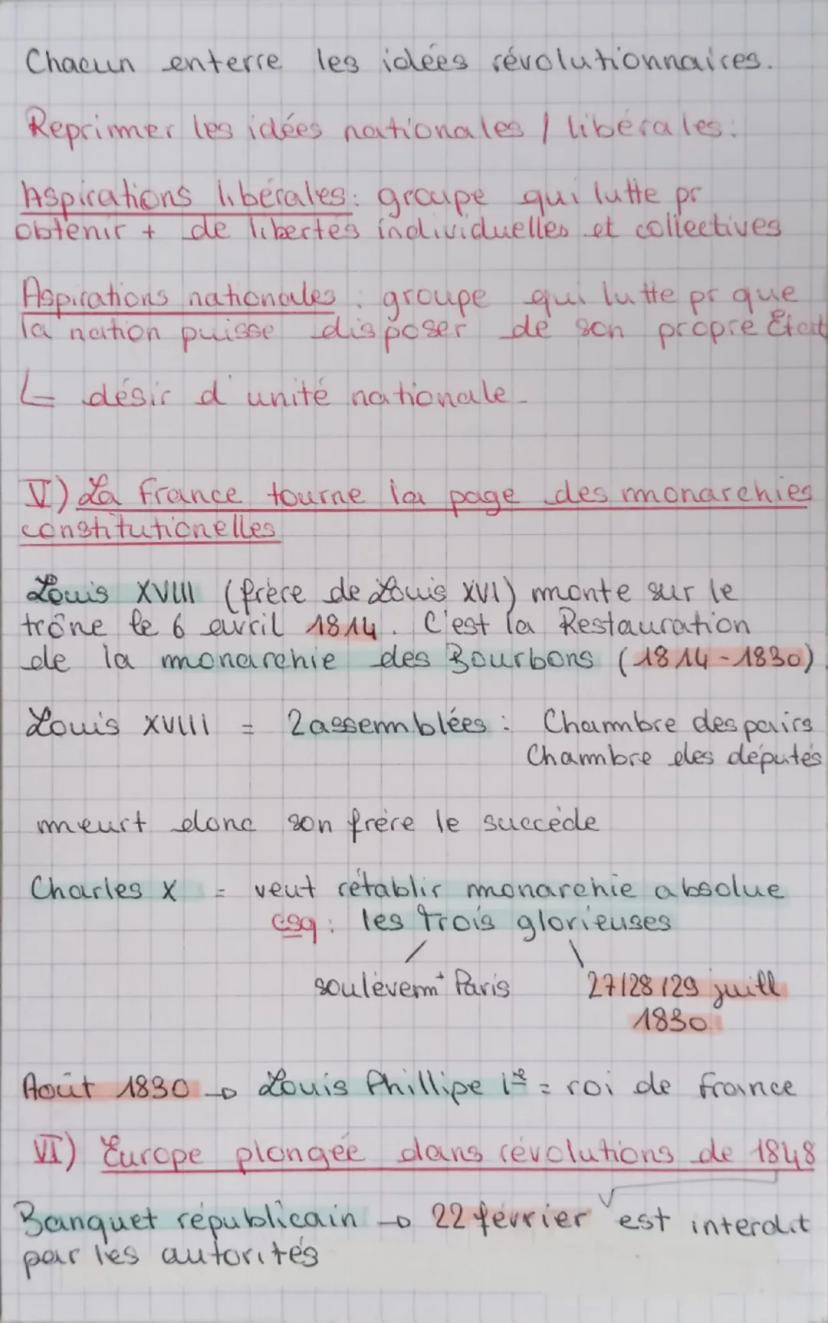 Chacun enterre les idées révolutionnaires.
Reprimer les idées nationales / libérales:
Aspirations libérales: groupe qui lutte pr
obtenir + de libertés individuelles et collectives
Aspirations nationales: groupe qui lutte pr que
la nation puisse disposer de son propre État
↳ désir d'unité nationale.
V) La France tourne la page des monarchies
constitutionelles
Louis XVIII (frère de Louis XVI) monte sur le
trône le 6 avril 1814. C'est la Restauration
de la monarchie des Bourbons (1814-1830).
Louis XVIII = 2 assemblées: Chambre des pairs
Chambre des députés
meurt donc son frère le succède
Charles X = veut rétablir monarchie absolue
csq: les trois glorieuses
soulèvemt Paris 27/28/29 juill
1830
Août 1830 → Louis Phillipe 1er = roi de France
VI) Europe plongée dans révolutions de 1848
Banquet républicain → 22 février est interdit
par les autorités